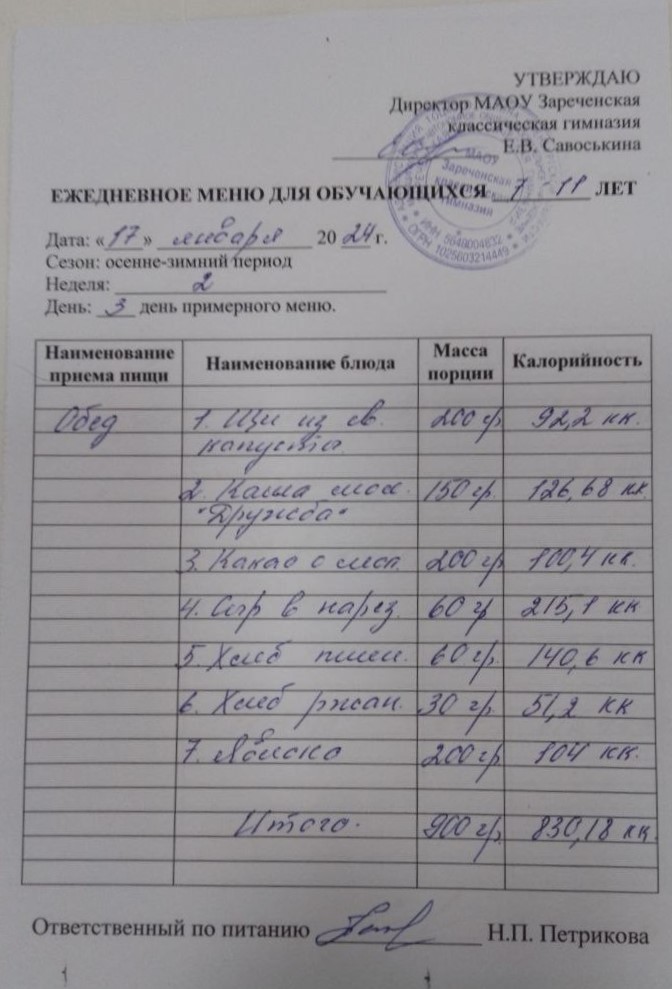 УТВЕРЖДАЮ
Директор МАОУ Зареченская
классическая гимназия
Е.В. Савоськина
ЕЖЕДНЕВНОЕ МЕНЮ ДЛЯ ОБУЧАЮЩИХСЯ 7 11 ЛЕТ
МАОУ
Зареченская
гимназия
ИНН 5649004832
ОГРН 1025603214449
Дата: «17» января 2024 г.
Сезон: осенне-зимний период
Неделя: 2
День: 3 день примерного меню.
Наименование приема пищи Наименование блюда Масса порции Калорийность
Обед 1. Щи из св. 200 гр 92,2 кк.
капуста
2. Каша мол. 150 гр. 126,68 кк.
"Дружба"
3. Какао с мол. 200 гр 100,4 кк.
4. Сыр в нарез. 60 гр 215,1 кк
5. Хлеб пшен. 60 гр. 140,6 кк
6. Хлеб ржан. 30 гр. 51,2 кк
7. Яблоко 200 гр 104 кк.
Итого. 900 гр. 830,18 кк.
Ответственный по питанию Н.П. Петрикова